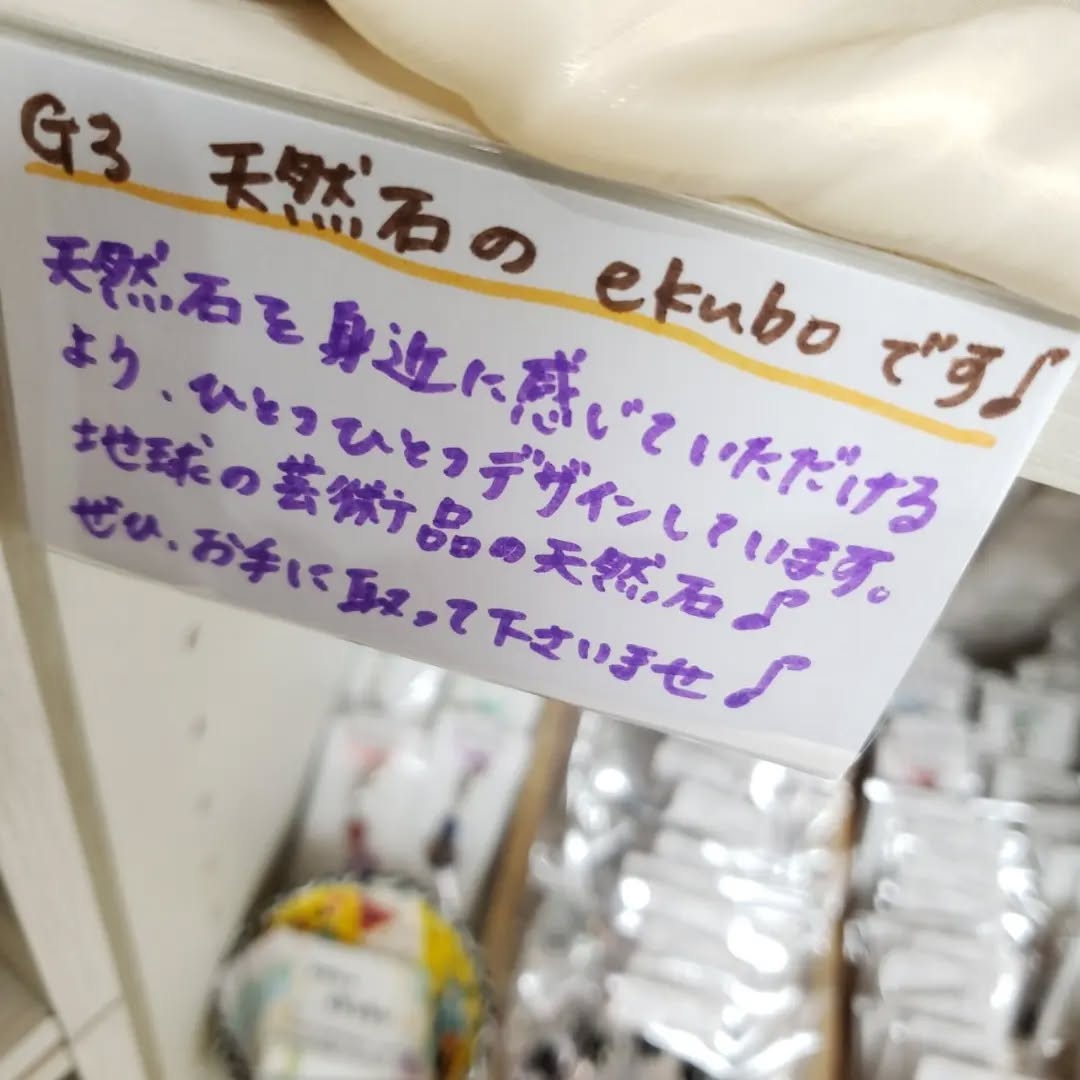 G3 天然石の ekuboです♪
天然石を身近に感じていただける
より、ひとつひとつデザインしています。
地球の芸術品の天然石♪
ぜひ、お手に取って下さいませ♪